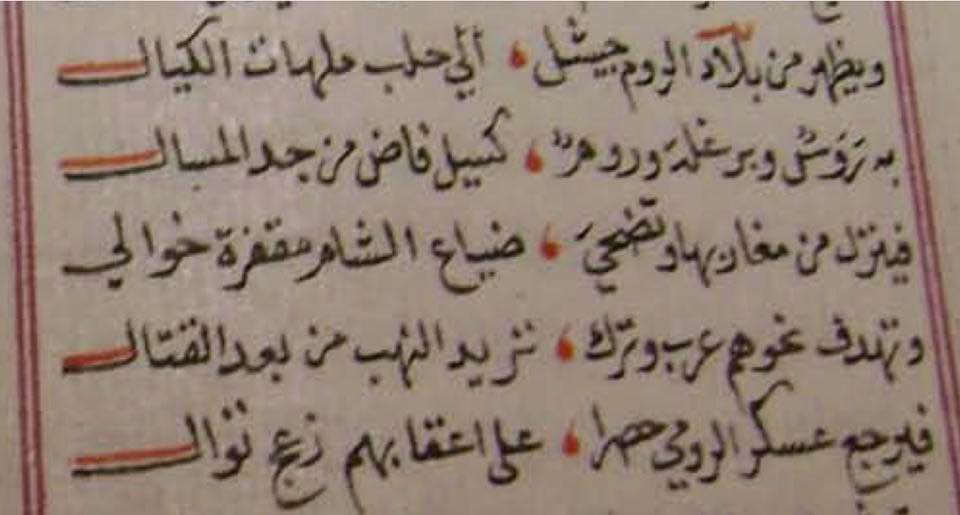 ويظهر من بلاد الروم جيش الي حلب ملهات الكيال
به روس وبرغلة وروم كسيل فاض من جبد المسال
فينزل من مغاربها وتضحي ضياع الشام مقفرة خوالي
وتهدف نحوهم عرب وترك تريد النهب من بعد القتال
فيرجع عسكر الرومي حصرا على اعقابهم زعج توال